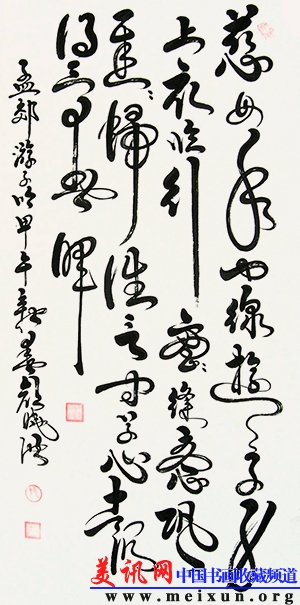 慈母手中線遊子身
上衣臨行密密縫意恐
遲遲歸誰言寸草心報
得三春暉
孟郊游子吟甲午
美讯网 中国书画收藏频道
www.meixun.org